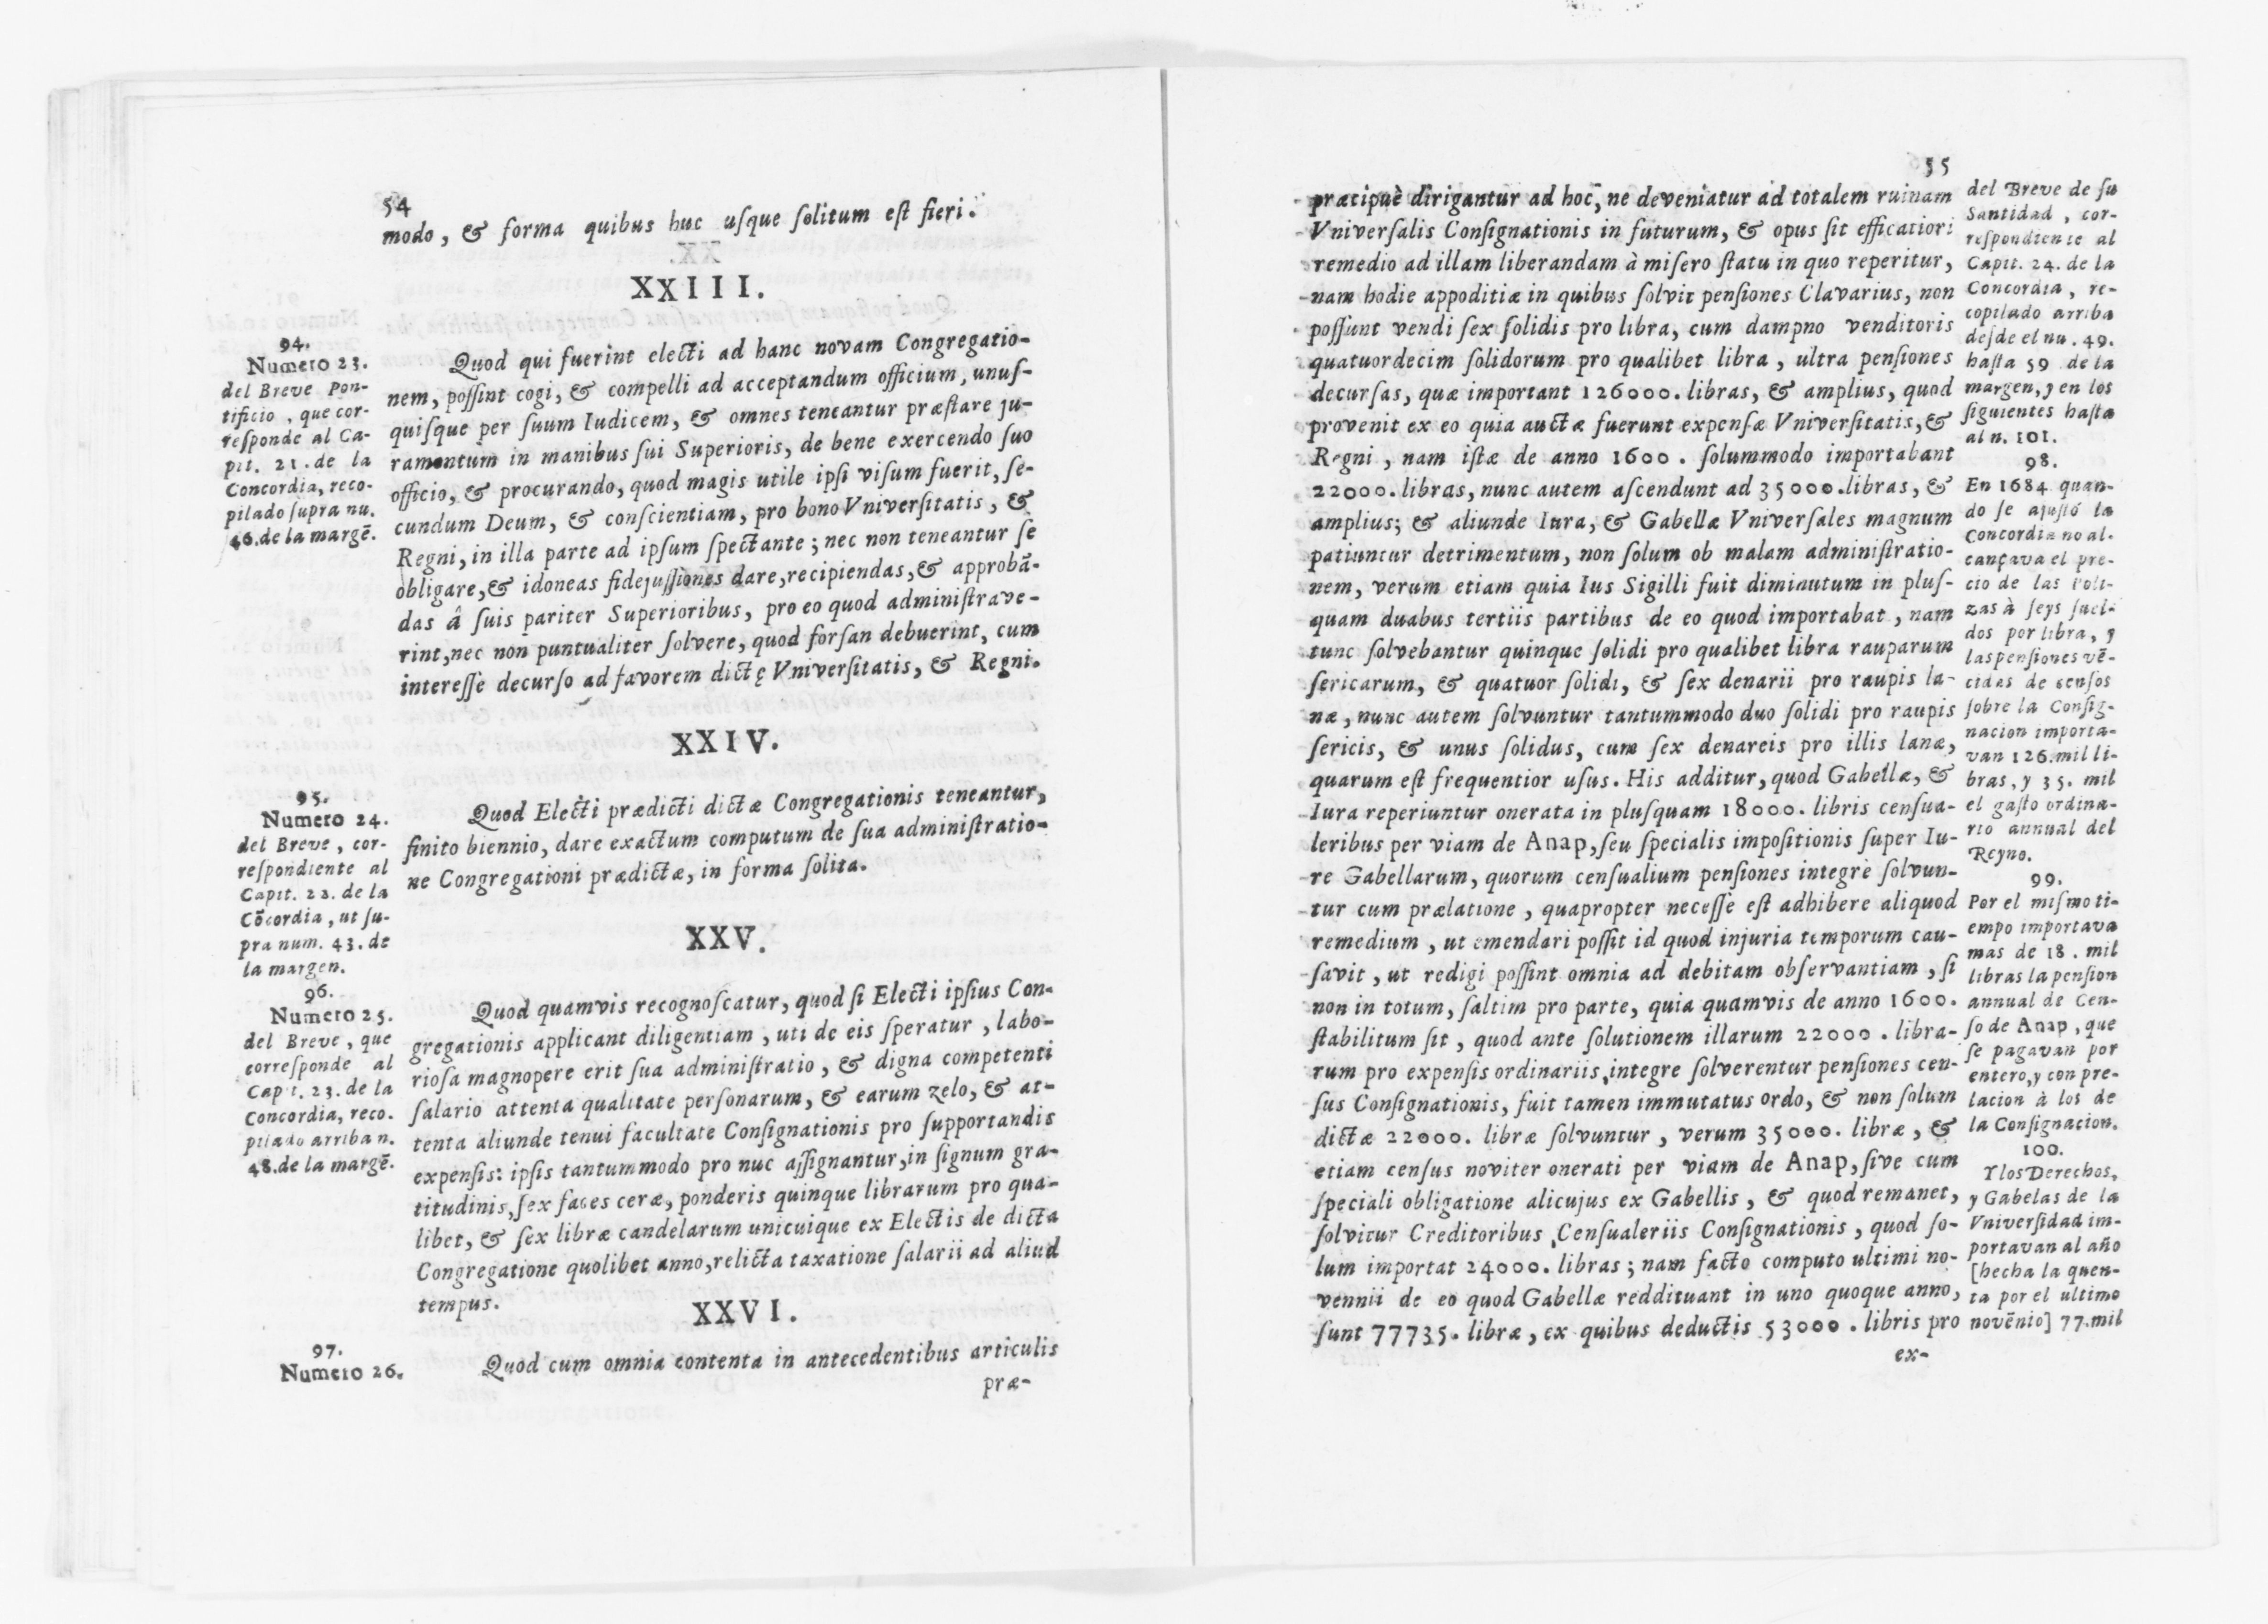 54
modo, & forma quibus huc uſque ſolitum eſt fieri.
XXIII.
94.
Numero 23.
del Breve Pon-
tificio, que cor-
reſponde al Ca-
pit. 21. de la
Concordia, reco-
pilado ſupra nu.
46. de la margẽ.
Quod qui fuerint electi ad hanc novam Congregatio-
nem, poſſint cogi, & compelli ad acceptandum officium, unuſ-
quiſque per ſuum Iudicem, & omnes teneantur præſtare ju-
ramentum in manibus ſui Superioris, de bene exercendo ſuo
officio, & procurando, quod magis utile ipſi viſum fuerit, ſe-
cundum Deum, & conſcientiam, pro bono Vniverſitatis, &
Regni, in illa parte ad ipſum ſpectante; nec non teneantur ſe
obligare, & idoneas fidejuſſiones dare, recipiendas, & approbã-
das â ſuis pariter Superioribus, pro eo quod adminiſtrave-
rint, nec non puntualiter ſolvere, quod forſan debuerint, cum
intereſſè decurſo ad favorem dictę Vniverſitatis, & Regni.
XXIV.
95.
Numero 24.
del Breve, cor-
reſpondiente al
Capit. 22. de la
Cõcordia, ut ſu-
pra num. 43. de
la margen.
Quod Electi prædicti dictæ Congregationis teneantur,
finito biennio, dare exactum computum de ſua adminiſtratio-
ne Congregationi prædictæ, in forma ſolita.
XXV.
96.
Numero 25.
del Breve, que
correſponde al
Capit. 23. de la
Concordia, reco-
pilado arriba n.
48. de la margẽ.
Quod quamvis recognoſcatur, quod ſi Electi ipſius Con-
gregationis applicant diligentiam, uti de eis ſperatur, labo-
rioſa magnopere erit ſua adminiſtratio, & digna competenti
ſalario attenta qualitate perſonarum, & earum zelo, & at-
tenta aliunde tenui facultate Conſignationis pro ſupportandis
expenſis: ipſis tantummodo pro nuc aſſignantur, in ſignum gra-
titudinis, ſex faces ceræ, ponderis quinque librarum pro qua-
libet, & ſex libræ candelarum unicuique ex Electis de dicta
Congregatione quolibet anno, relicta taxatione ſalarii ad aliud
tempus.
XXVI.
97.
Numero 26.
Quod cum omnia contenta in antecedentibus articulis
præ-
55
præcipuè dirigantur ad hoc, ne deveniatur ad totalem ruinam
Vniverſalis Conſignationis in futurum, & opus ſit efficatiori
remedio ad illam liberandam à miſero ſtatu in quo reperitur,
nam hodie appoditiæ in quibus ſolvit penſiones Clavarius, non
poſſunt vendi ſex ſolidis pro libra, cum dampno venditoris
quatuordecim ſolidorum pro qualibet libra, ultra penſiones
decurſas, quæ important 126000. libras, & amplius, quod
provenit ex eo quia auctæ fuerunt expenſæ Vniverſitatis, &
Regni, nam iſtæ de anno 1600. ſolummodo importabant
22000. libras, nunc autem aſcendunt ad 35000. libras, &
amplius; & aliunde Iura, & Gabellæ Vniverſales magnum
patiuntur detrimentum, non ſolum ob malam adminiſtratio-
nem, verum etiam quia Ius Sigilli fuit diminutum in pluſ-
quam duabus tertiis partibus de eo quod importabat, nam
tunc ſolvebantur quinque ſolidi pro qualibet libra rauparum
ſericarum, & quatuor ſolidi, & ſex denarii pro raupis la-
næ, nunc autem ſolvuntur tantummodo duo ſolidi pro raupis
ſericis, & unus ſolidus, cum ſex denareis pro illis lanæ,
quarum eſt frequentior uſus. His additur, quod Gabellæ, &
Iura reperiuntur onerata in pluſquam 18000. libris cenſua-
leribus per viam de Anap, ſeu ſpecialis impoſitionis ſuper Iu-
re Gabellarum, quorum cenſualium penſiones integrè ſolvun-
tur cum prælatione, quapropter neceſſè eſt adhibere aliquod
remedium, ut emendari poſſit id quod injuria temporum cau-
ſavit, ut redigi poſſint omnia ad debitam obſervantiam, ſi
non in totum, ſaltim pro parte, quia quamvis de anno 1600.
ſtabilitum ſit, quod ante ſolutionem illarum 22000. libra-
rum pro expenſis ordinariis, integre ſolverentur penſiones cen-
ſus Conſignationis, fuit tamen immutatus ordo, & non ſolum
dictæ 22000. libræ ſolvuntur, verum 35000. libræ, &
etiam cenſus noviter onerati per viam de Anap, ſive cum
ſpeciali obligatione alicujus ex Gabellis, & quod remanet,
ſolvitur Creditoribus Cenſualeriis Conſignationis, quod ſo-
lum importat 24000. libras; nam facto computo ultimi no-
vennii de eo quod Gabellæ reddituant in uno quoque anno,
ſunt 77735. libræ, ex quibus deductis 53000. libris pro
ex-
del Breve de ſu
Santidad, cor-
reſpondiente al
Capit. 24. de la
Concordia, re-
copilado arriba
deſde el nu. 49.
haſta 59 de la
margen, y en los
ſiguientes haſta
al n. 101.
98.
En 1684 quan-
do ſe ajuſtó la
Concordia no al-
cançava el pre-
cio de las Poli-
zas à ſeys ſuel-
dos por libra, y
las penſiones vẽ-
cidas de cenſos
ſobre la Conſig-
nacion importa-
van 126. mil li-
bras, y 35. mil
el gaſto ordina-
rio annual del
Reyno.
99.
Por el miſmo ti-
empo importava
mas de 18. mil
libras la penſion
annual de Cen-
ſo de Anap, que
ſe pagavan por
entero, y con pre-
lacion à los de
la Conſignacion.
100.
Y los Derechos,
y Gabelas de la
Vniverſidad im-
portavan al año
[hecha la quen-
ta por el ultimo
novẽnio] 77. mil